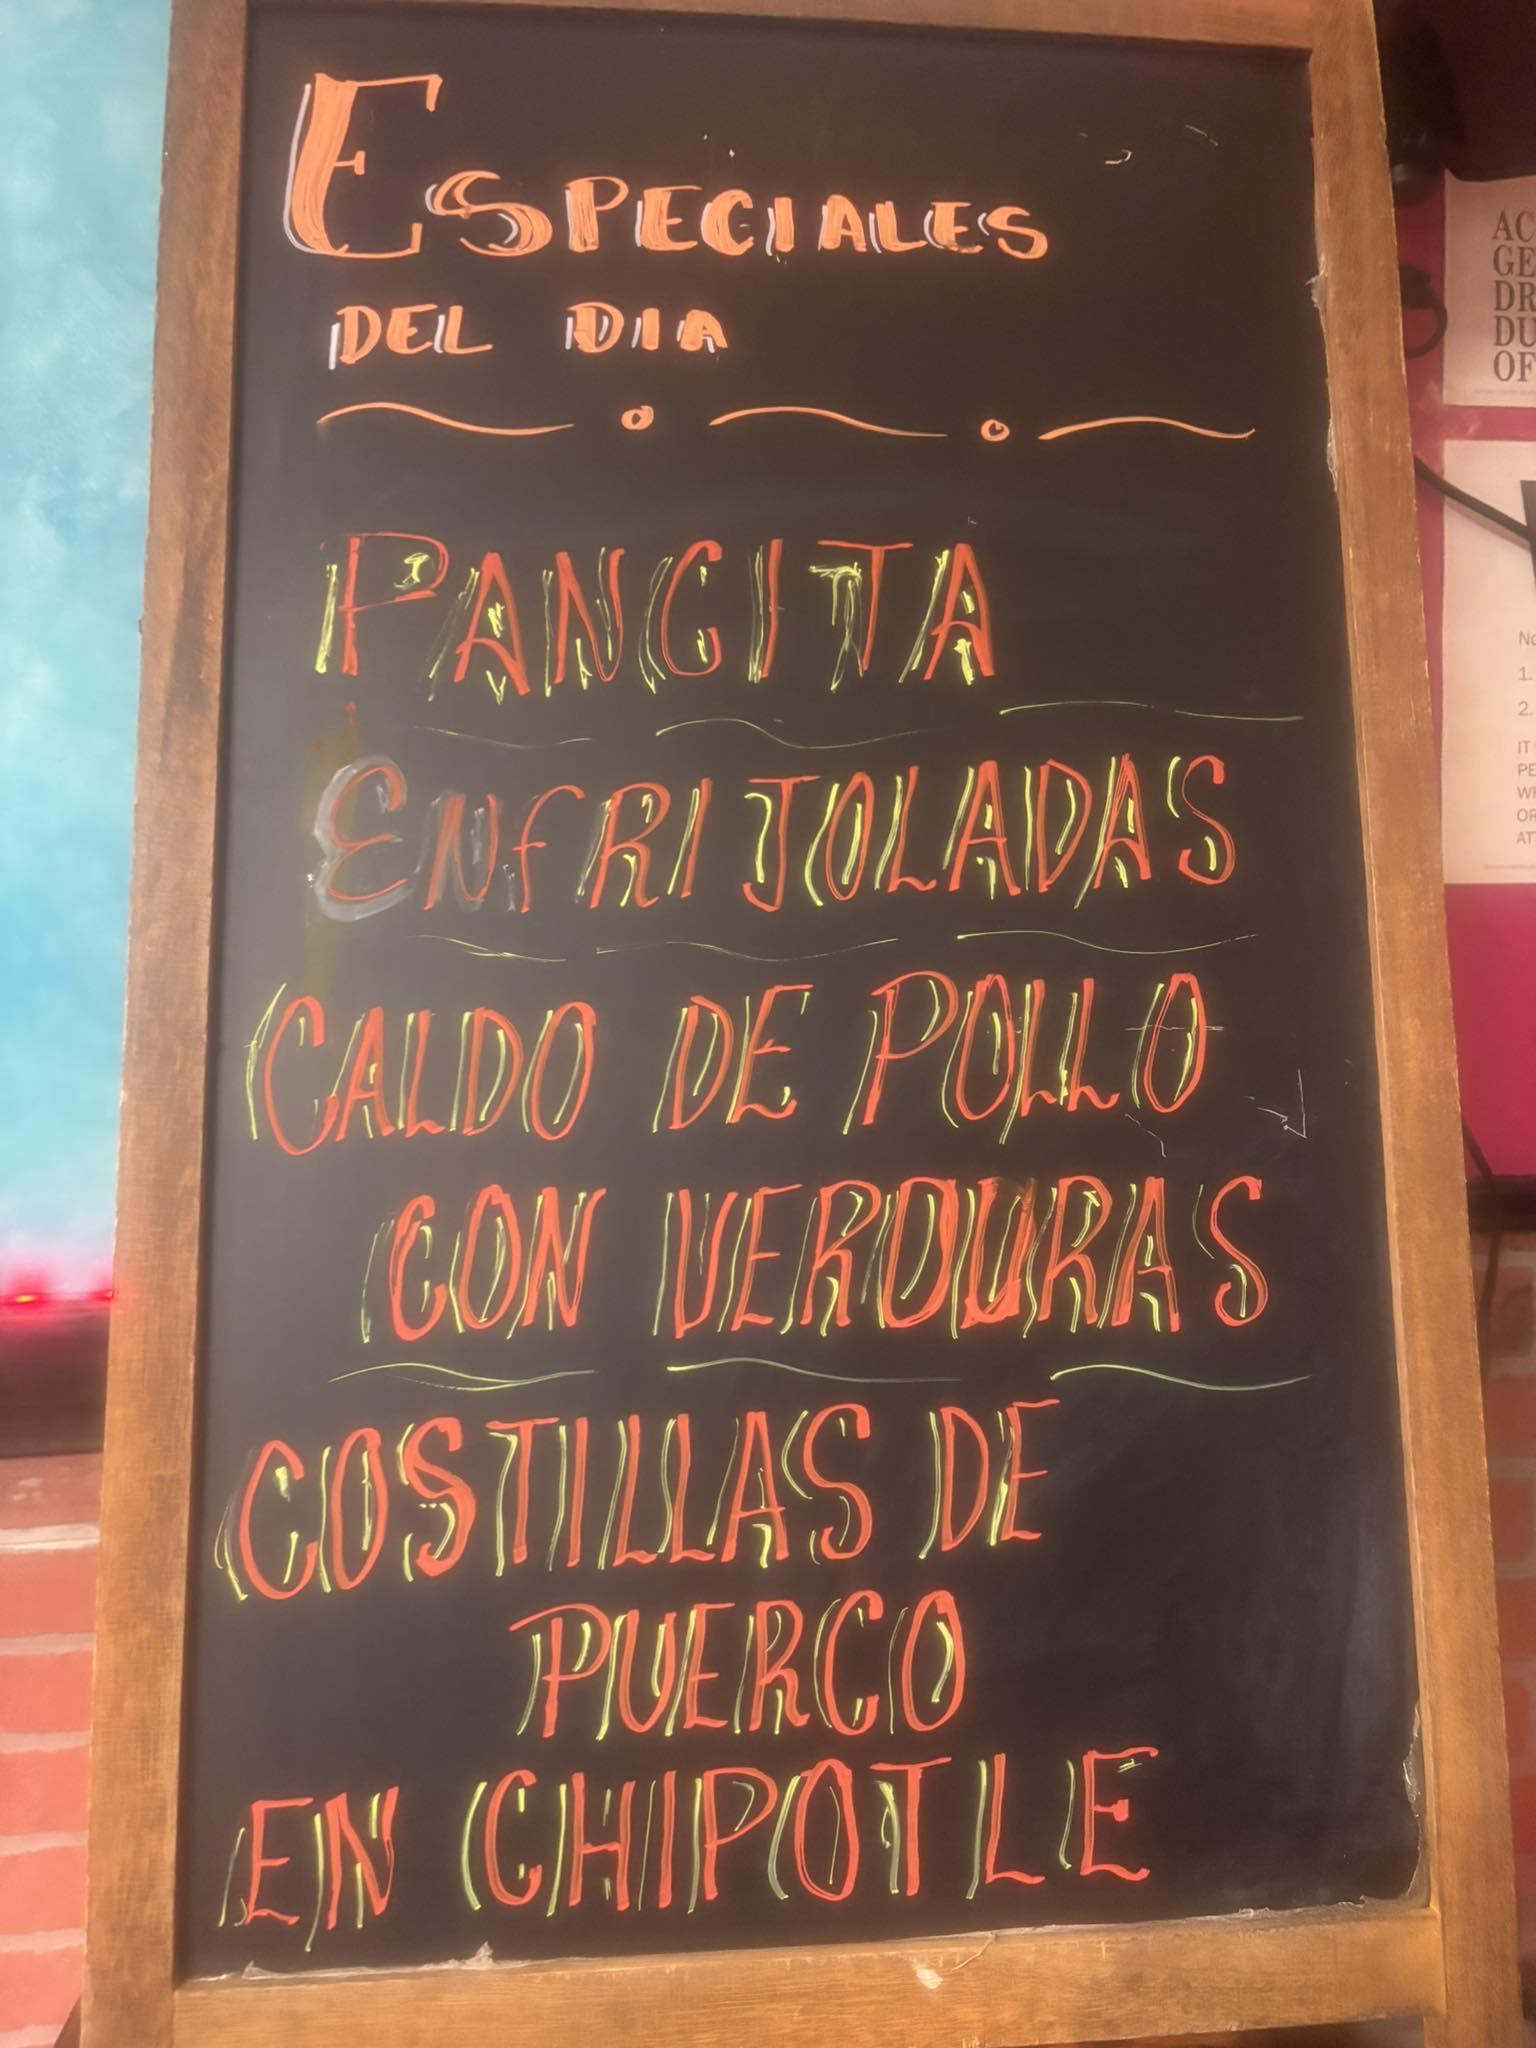 ESPECIALES
DEL DIA
PANCITA
ENFRIJOLADAS
CALDO DE POLLO
CON VERDURAS
COSTILLAS DE
PUERCO
EN CHIPOTLE
AC
GE
DR
DU
OF
No
1.
2.
IT
PE
OR
AT